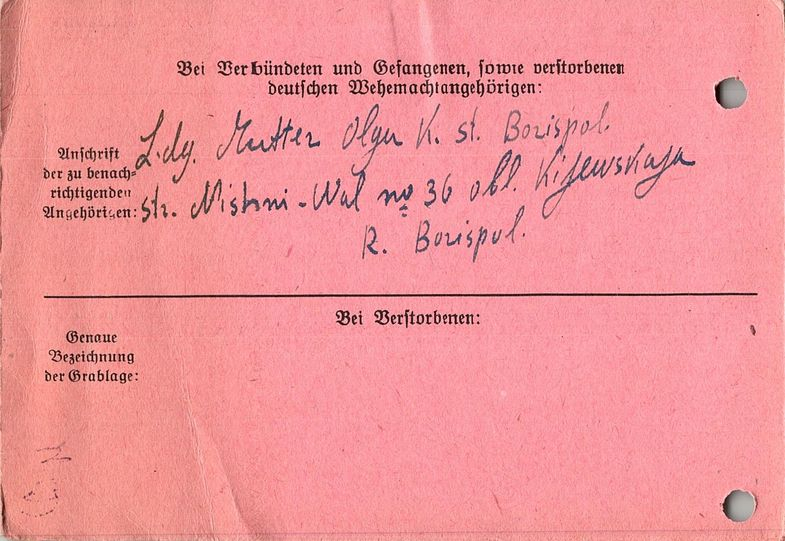 Bei Verbündeten und Gefangenen, sowie verstorbenen
deutschen Wehemachtangehörigen:
Anschrift
der zu benach-
richtigenden
Angehörigen:
Ldg. Mutter Olga K. st. Borispol.
str. Mistsni-Wal no 36 obl. Kijewskaja
R. Borispol.
Bei Verstorbenen:
Genaue
Bezeichnung
der Grablage: